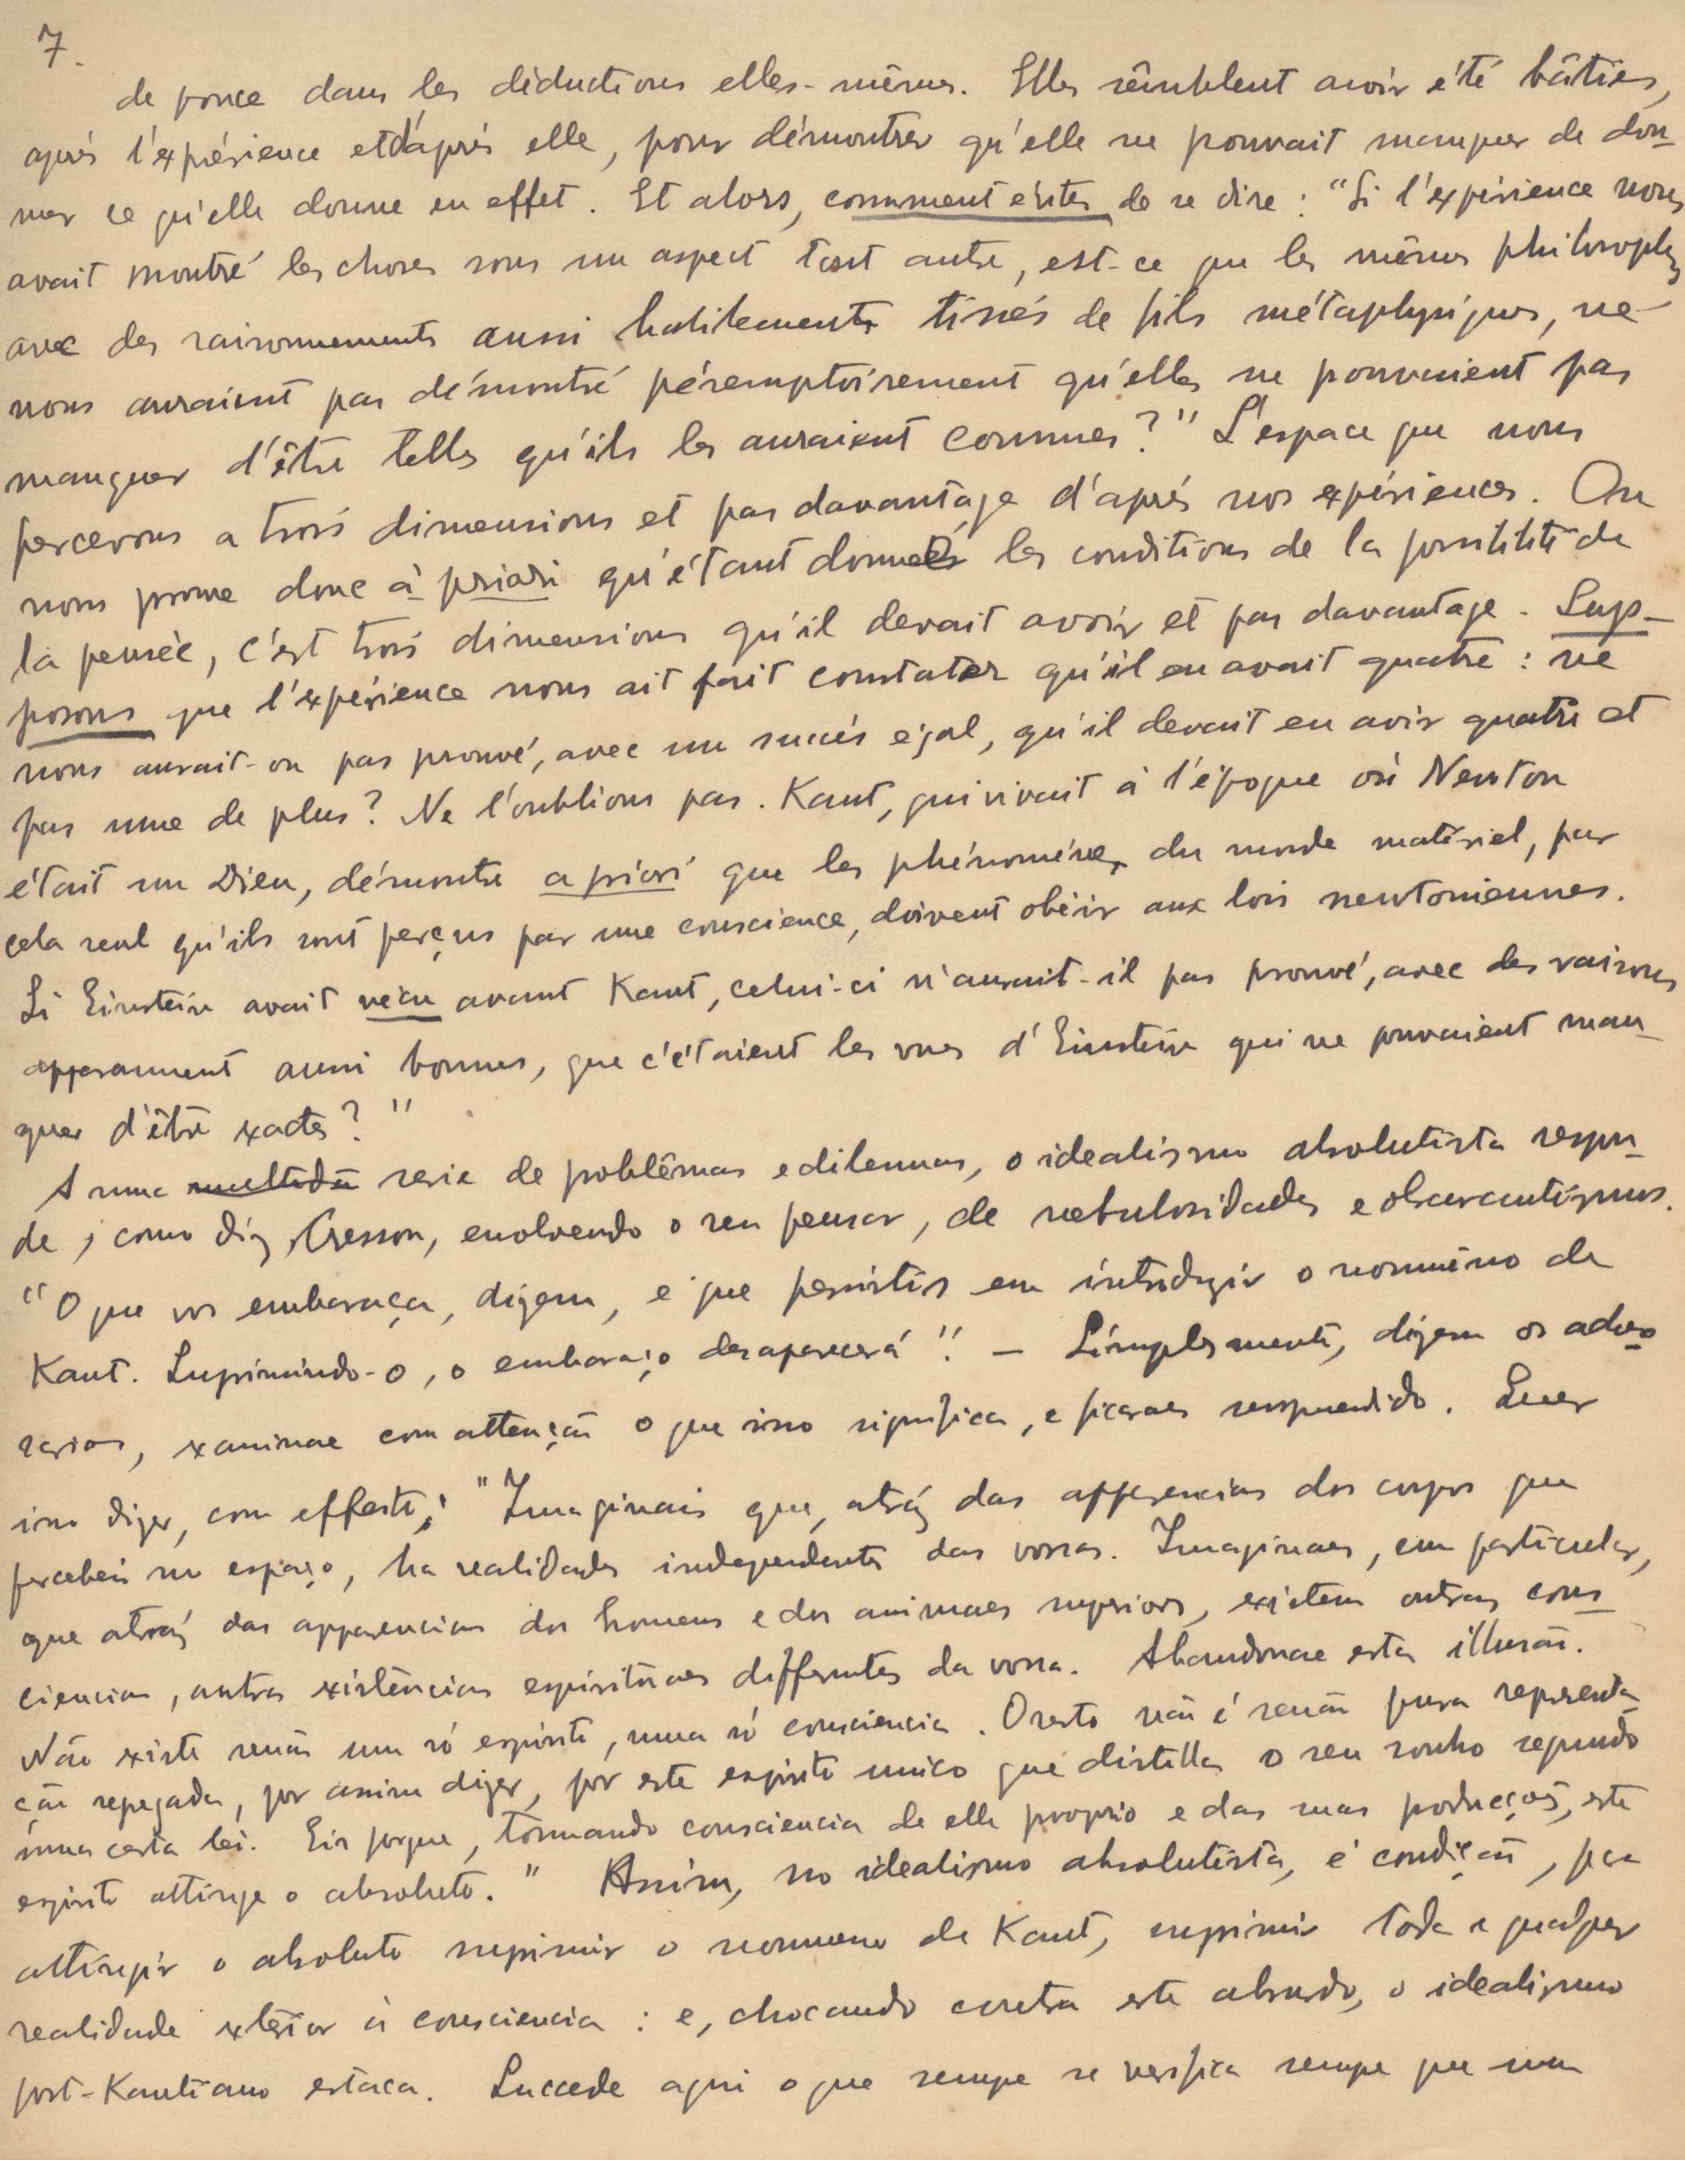 7.
de pouce dans les déductions elles-mêmes. Elles sêmblent avoir été bâties,
après l'expérience et d'après elle, pour démontrer qu'elle ne pouvait manquer de don-
ner ce qu'elle donne en effet. Et alors, comment éviter de se dire : "Si l'expérience nous
avait montré les choses sous un aspect tout autre, est-ce que les mêmes philosophes
avec des raisonnements aussi habilements tissés de fils métaphysiques, ne
nous auraient pas démontré péremptoirement qu'elles ne pouvaient pas
manquer d'être telles qu'ils les auraient connues?" L'espace que nous
percevons a trois dimensions et pas davantage d'après nos expériences. On
nous prouve donc à priori qu'étant données les conditions de la possibilité de
la pensée, c'est trois dimensions qu'il devait avoir et pas davantage. Sup-
posons que l'expérience nous ait fait constater qu'il en avait quatre : ne
nous aurait-on pas prouvé, avec un succès égal, qu'il devait en avoir quatre et
pas une de plus? Ne l'oublions pas. Kant, qui vivait à l'époque où Newton
était un Dieu, démontre a priori que les phénomènes du monde matériel, par
cela seul qu'ils sont perçus par une conscience, doivent obéir aux lois newtoniennes.
Si Einstein avait vécu avant Kant, celui-ci n'aurait-il pas prouvé, avec des raisons
apparamment aussi bonnes, que c'étaient les vues d'Einstein qui ne pouvaient man-
quer d'être exactes?"
A uma multidão serie de poblêmas e dilemas, o idealismo absolutista respon-
de, como diz Cresson, envolvendo o seu pensar, de nebulosidades e obscurantismos.
"O que vos embaraça, dizem, é que persistis em introduzir o noumêno de
Kant. Suprimindo-o, o embaraço desaparecerá". — Simplesmente, dizem os adver-
sarios, examinae com attenção o que isso significa, e ficareis surpreendido. Quer
isso dizer, com effeito: "Imaginais que, atráz das apparencias dos corpos que
percebeis no espaço, ha realidades independentes das vossas. Imaginaes, em particular,
que atráz das apparencias dos homens e dos animaes superiores, existem outras cons-
ciencias, outras existências espirituaes differentes da vossa. Abandonae esta illusão.
Não existe senão um só espirito, uma só consciencia. O resto não é senão pura representa-
ção segregada, por assim dizer, por este espirito unico que distilla o seu sonho segundo
uma certa lei. Eis porque, tomando consciencia de elle proprio e das suas producções, este
espirito attinge o absoluto." Assim, no idealismo absolutista, é condição, para
attingir o absoluto suprimir o noumeno de Kant, suprimir toda e qualquer
realidade exterior á consciencia : e, chocando contra este absurdo, o idealismo
post-Kantiano estaca. Succede aqui o que sempre se verifica sempre que um